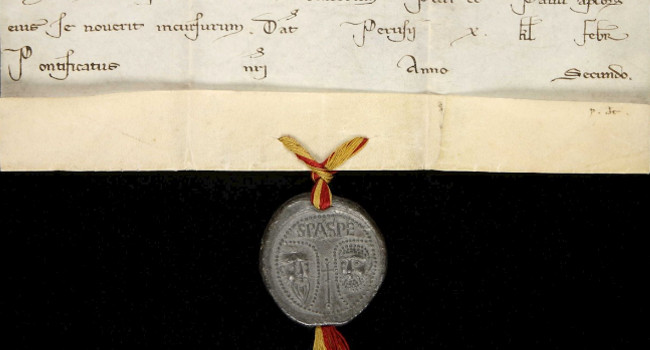 Petri et Pauli aptor
eius se noverit incursurum. Dat Perusii x. kl febr
Pontificatus nri Anno Secundo.
p. dt.
SPASPE